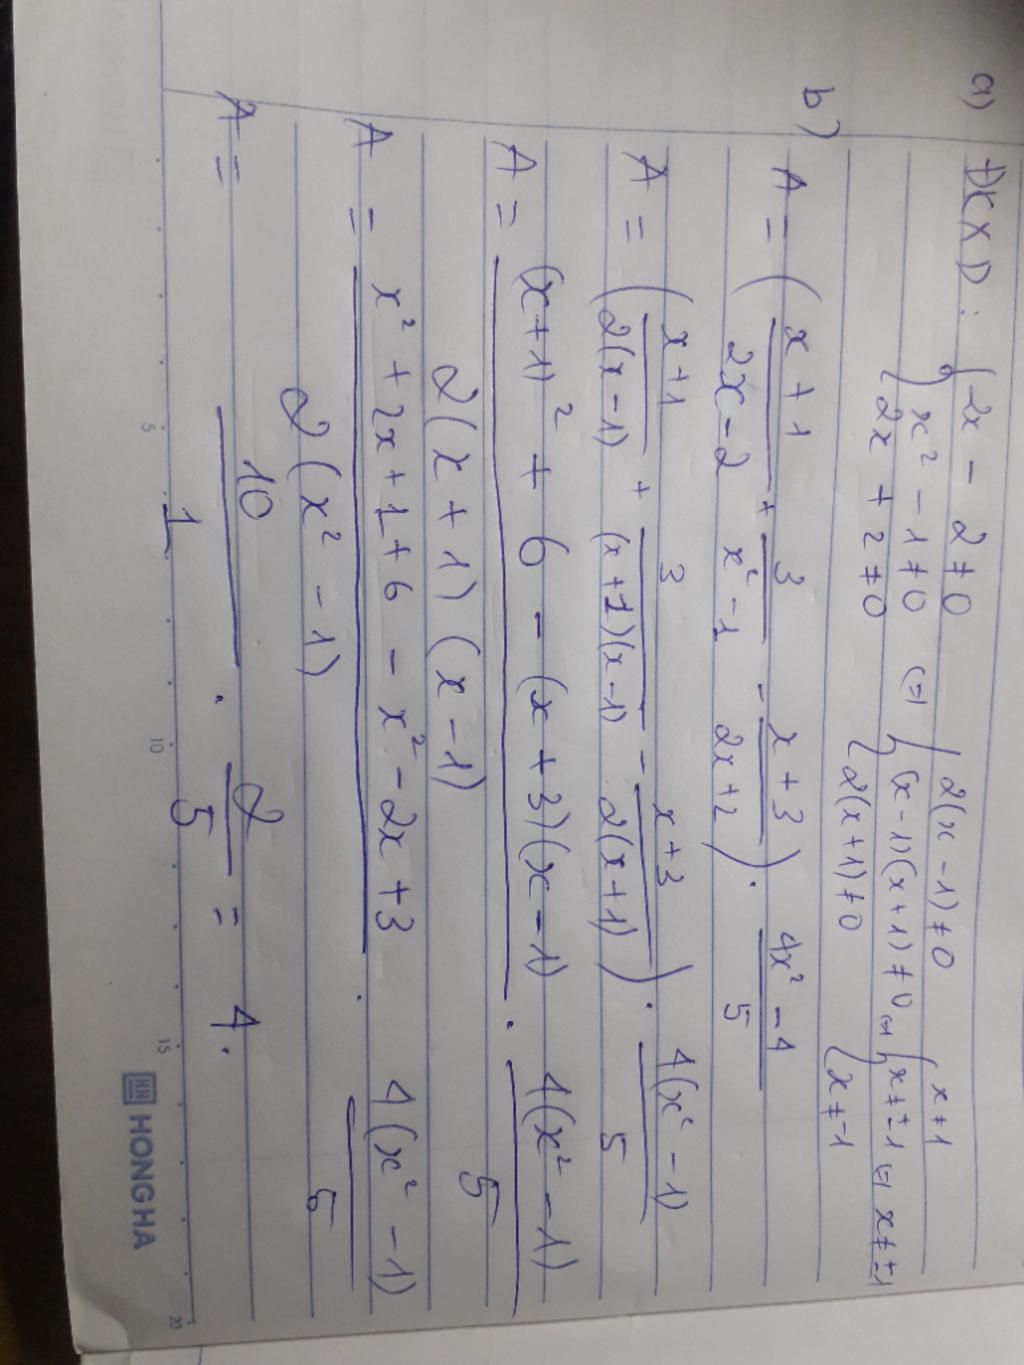 a) ĐKXĐ: { 2x - 2 ≠ 0
x² - 1 ≠ 0 (=)
2x + 2 ≠ 0
{ 2(x - 1) ≠ 0
(x - 1)(x + 1) ≠ 0 (=)
2(x + 1) ≠ 0
{ x ≠ 1
x ≠ ±1 (=) x ≠ ±1
x ≠ -1
b) A = ( (x + 1)/(2x - 2) + 3/(x² - 1) - (x + 3)/(2x + 2) ) . (4x² - 4)/5
A = ( (x + 1)/(2(x - 1)) + 3/((x + 1)(x - 1)) - (x + 3)/(2(x + 1)) ) . 4(x² - 1)/5
A = ((x + 1)² + 6 - (x + 3)(x - 1))/(2(x + 1)(x - 1)) . 4(x² - 1)/5
A = (x² + 2x + 1 + 6 - x² - 2x + 3)/(2(x² - 1)) . 4(x² - 1)/5
A = 10/1 . 2/5 = 4.
5 10 15 20
HH HONG HA